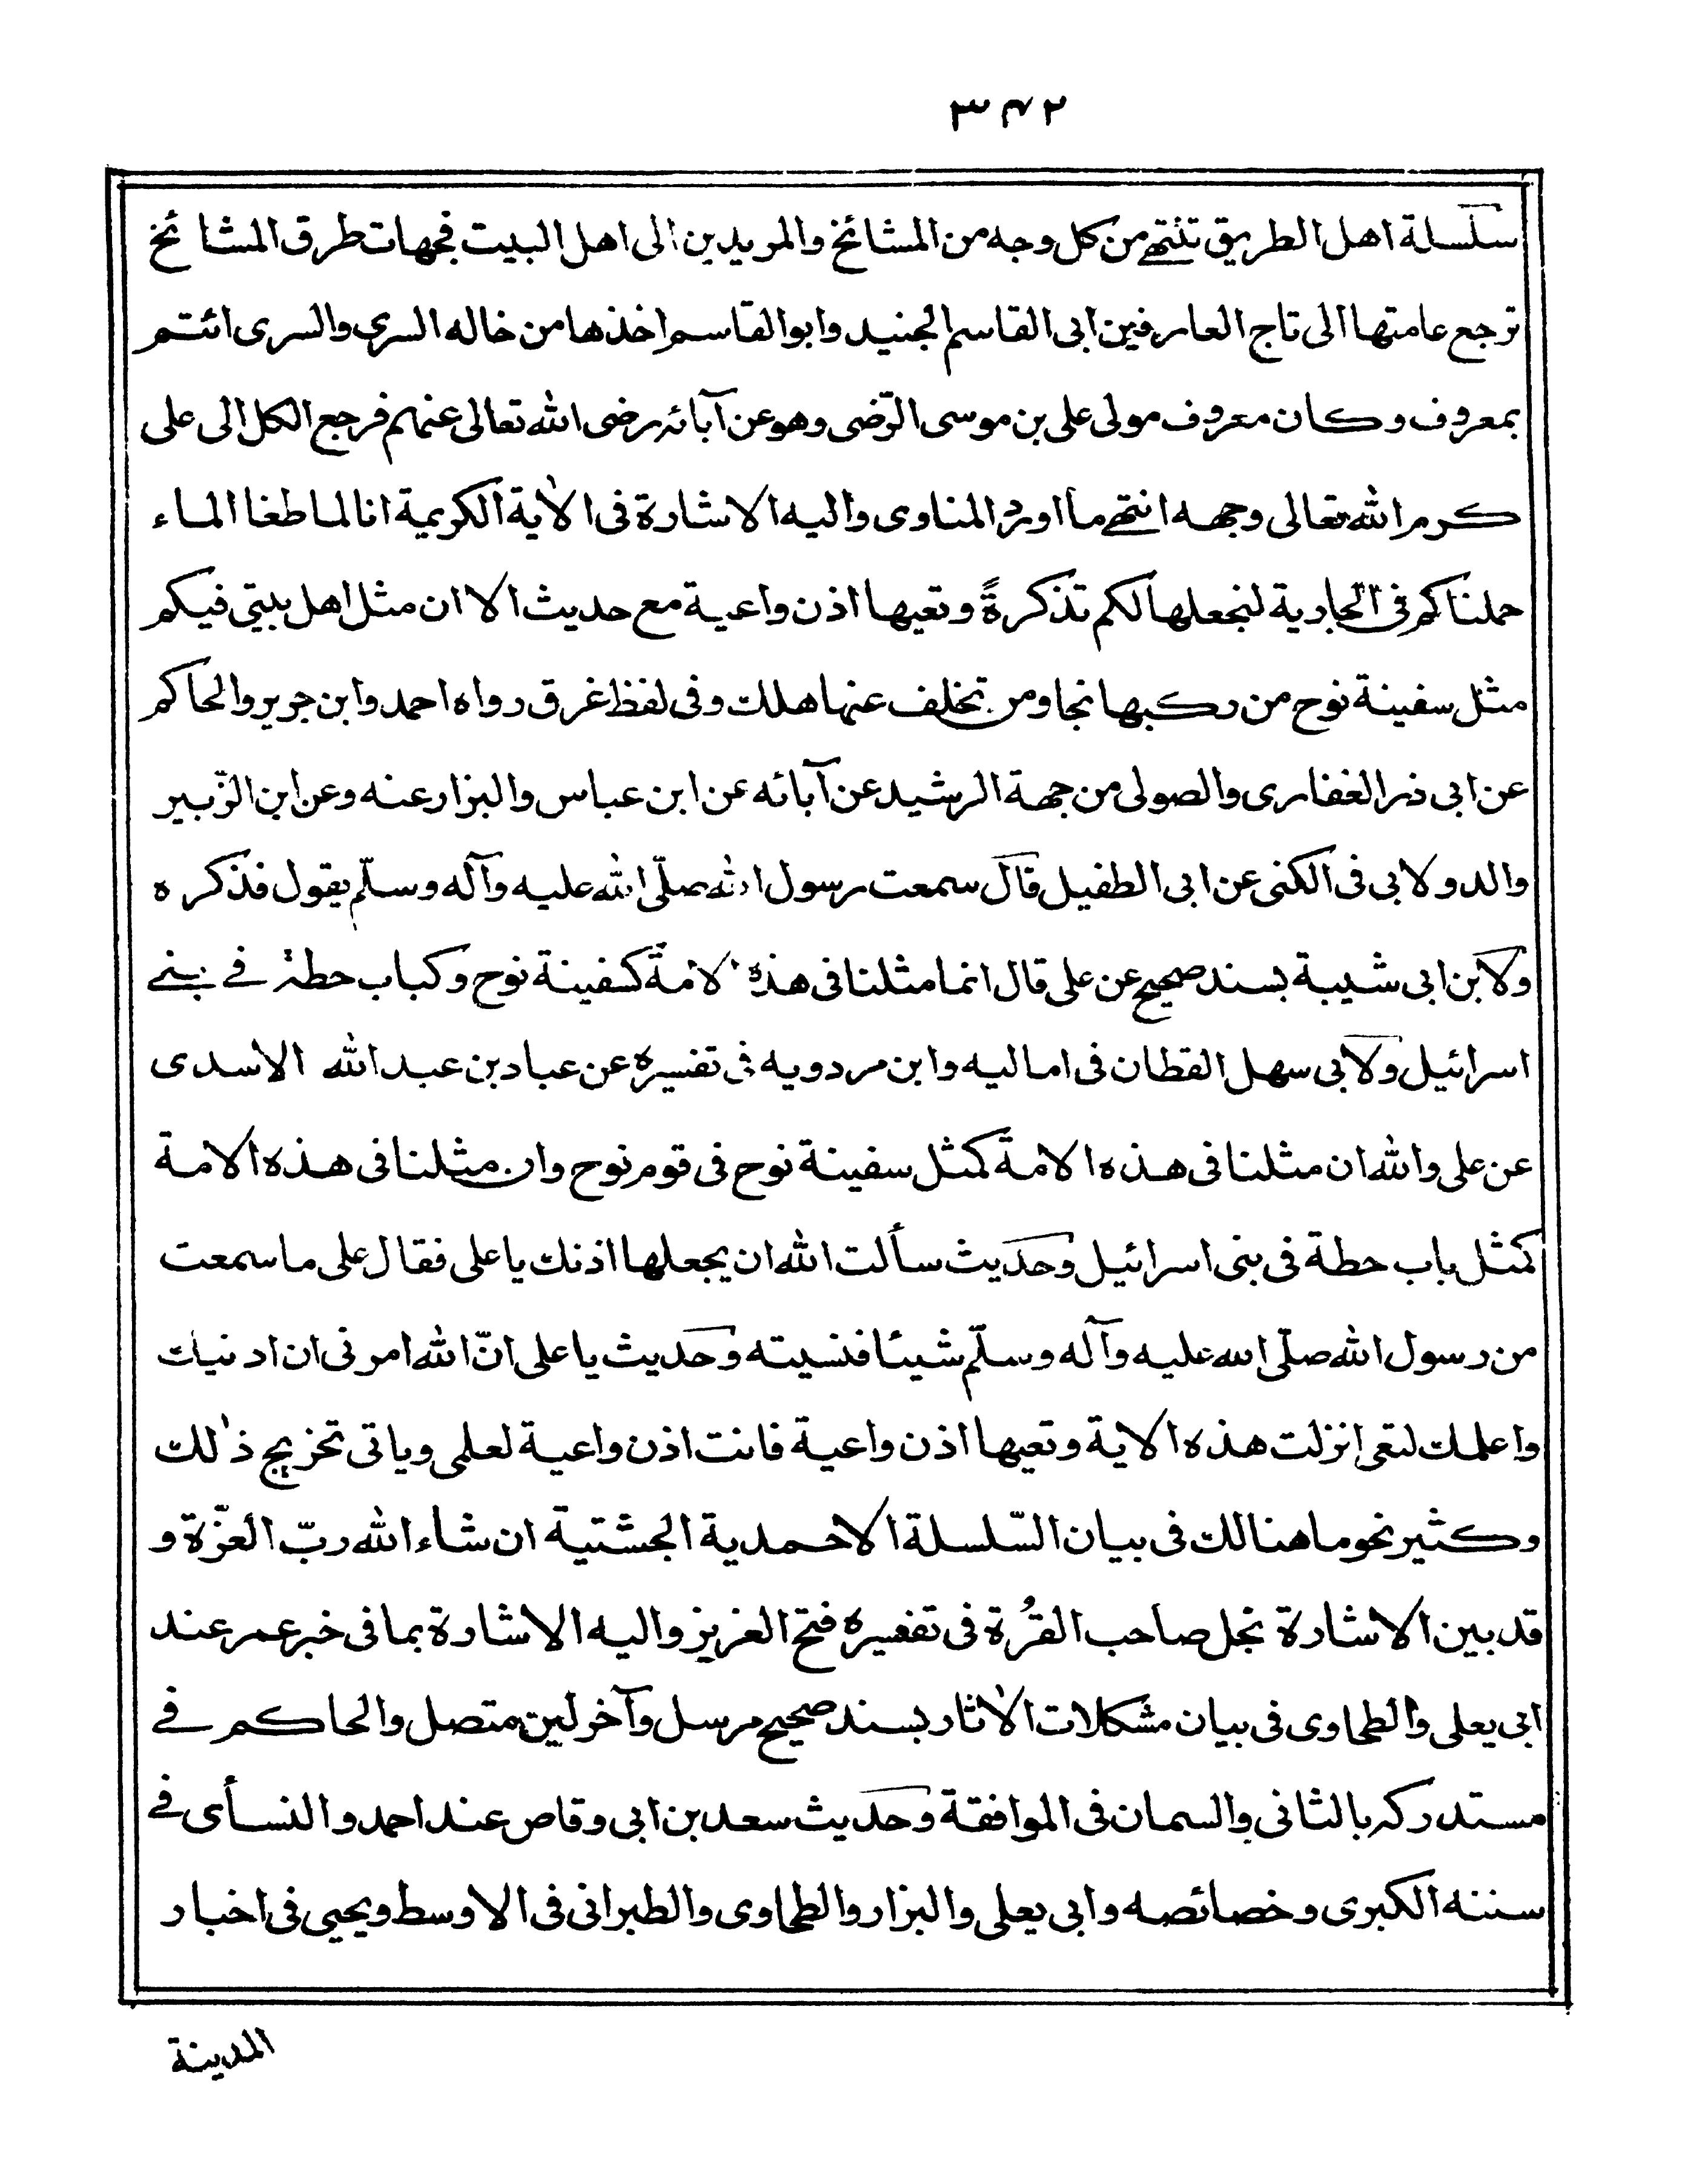 ۳۴۲
سلسلة اهل الطريق تنتهے من كل وجه من المشائخ والمريدين الى اهل البيت فجهات طرق المشائخ
ترجع عامتها الى تاج العارفين ابى القاسم الجنيد وابو القاسم اخذها من خاله السرى والسرى ائتم
بمعروف وكان معروف مولى على بن موسى الرّضى وهو عن آبائه رضى الله تعالى عنهم فرجع الكل الى على
كرم الله تعالى وجهه انتهے ما اورد المناوى واليه الاشارة فى الاٰية الكريمة انا لما طغا الماء
حملناكم فى الجارية لنجعلها لكم تذكرةً وتعيها اذن واعية مع حديث الا ان مثل اهل بيتى فيكم
مثل سفينة نوح من ركبها نجا ومن تخلف عنها هلك وفى لفظ غرق رواه احمد وابن جرير والحاكم
عن ابى ذر الغفارى والصولى من جهة الرشيد عن آبائه عن ابن عباس والبزار عنه وعن ابن الزّبير
والدولابى فى الكنى عن ابى الطفيل قال سمعت رسول الله صلّى الله عليه وآله وسلّم يقول فذكره
ولابن ابى شيبة بسند صحيح عن على قال انما مثلنا فى هذه الامة كسفينة نوح وكباب حطة فے بنے
اسرائيل ولابى سهل القطان فى اماليه وابن مردويه فى تفسيره عن عباد بن عبد الله الاسدى
عن على والله ان مثلنا فى هذه الامة كمثل سفينة نوح فى قوم نوح وان مثلنا فى هذه الامة
كمثل باب حطة فى بنى اسرائيل وحديث سألت الله ان يجعلها اذنك يا على فقال على ما سمعت
من رسول الله صلّى الله عليه وآله وسلّم شيئا فنسيته وحديث يا على انّ الله امرنى ان ادنيك
واعلمك لتعى انزلت هذه الاية وتعيها اذن واعية فانت اذن واعية لعلمى وياتى تخريج ذٰلك
وكثير نحو ما هنالك فى بيان السّلسلة الاحمدية الجشتية ان شاء الله ربّ العزّة و
قد بين الاشارة نجل صاحب القرُة فى تفسيره فتح العزيز واليه الاشارة بما فى خبر عمر عند
ابى يعلى والطحاوى فى بيان مشكلات الاٰثار بسند صحيح مرسل وآخر لين متصل والحاكم فے
مستدركه بالثانى والسمان فى الموافقة وحديث سعد بن ابى وقاص عند احمد والنسأى فے
سننه الكبرى وخصائصه وابى يعلى والبزار والطحاوى والطبرانى فى الاوسط ويحيى فى اخبار
المدينة